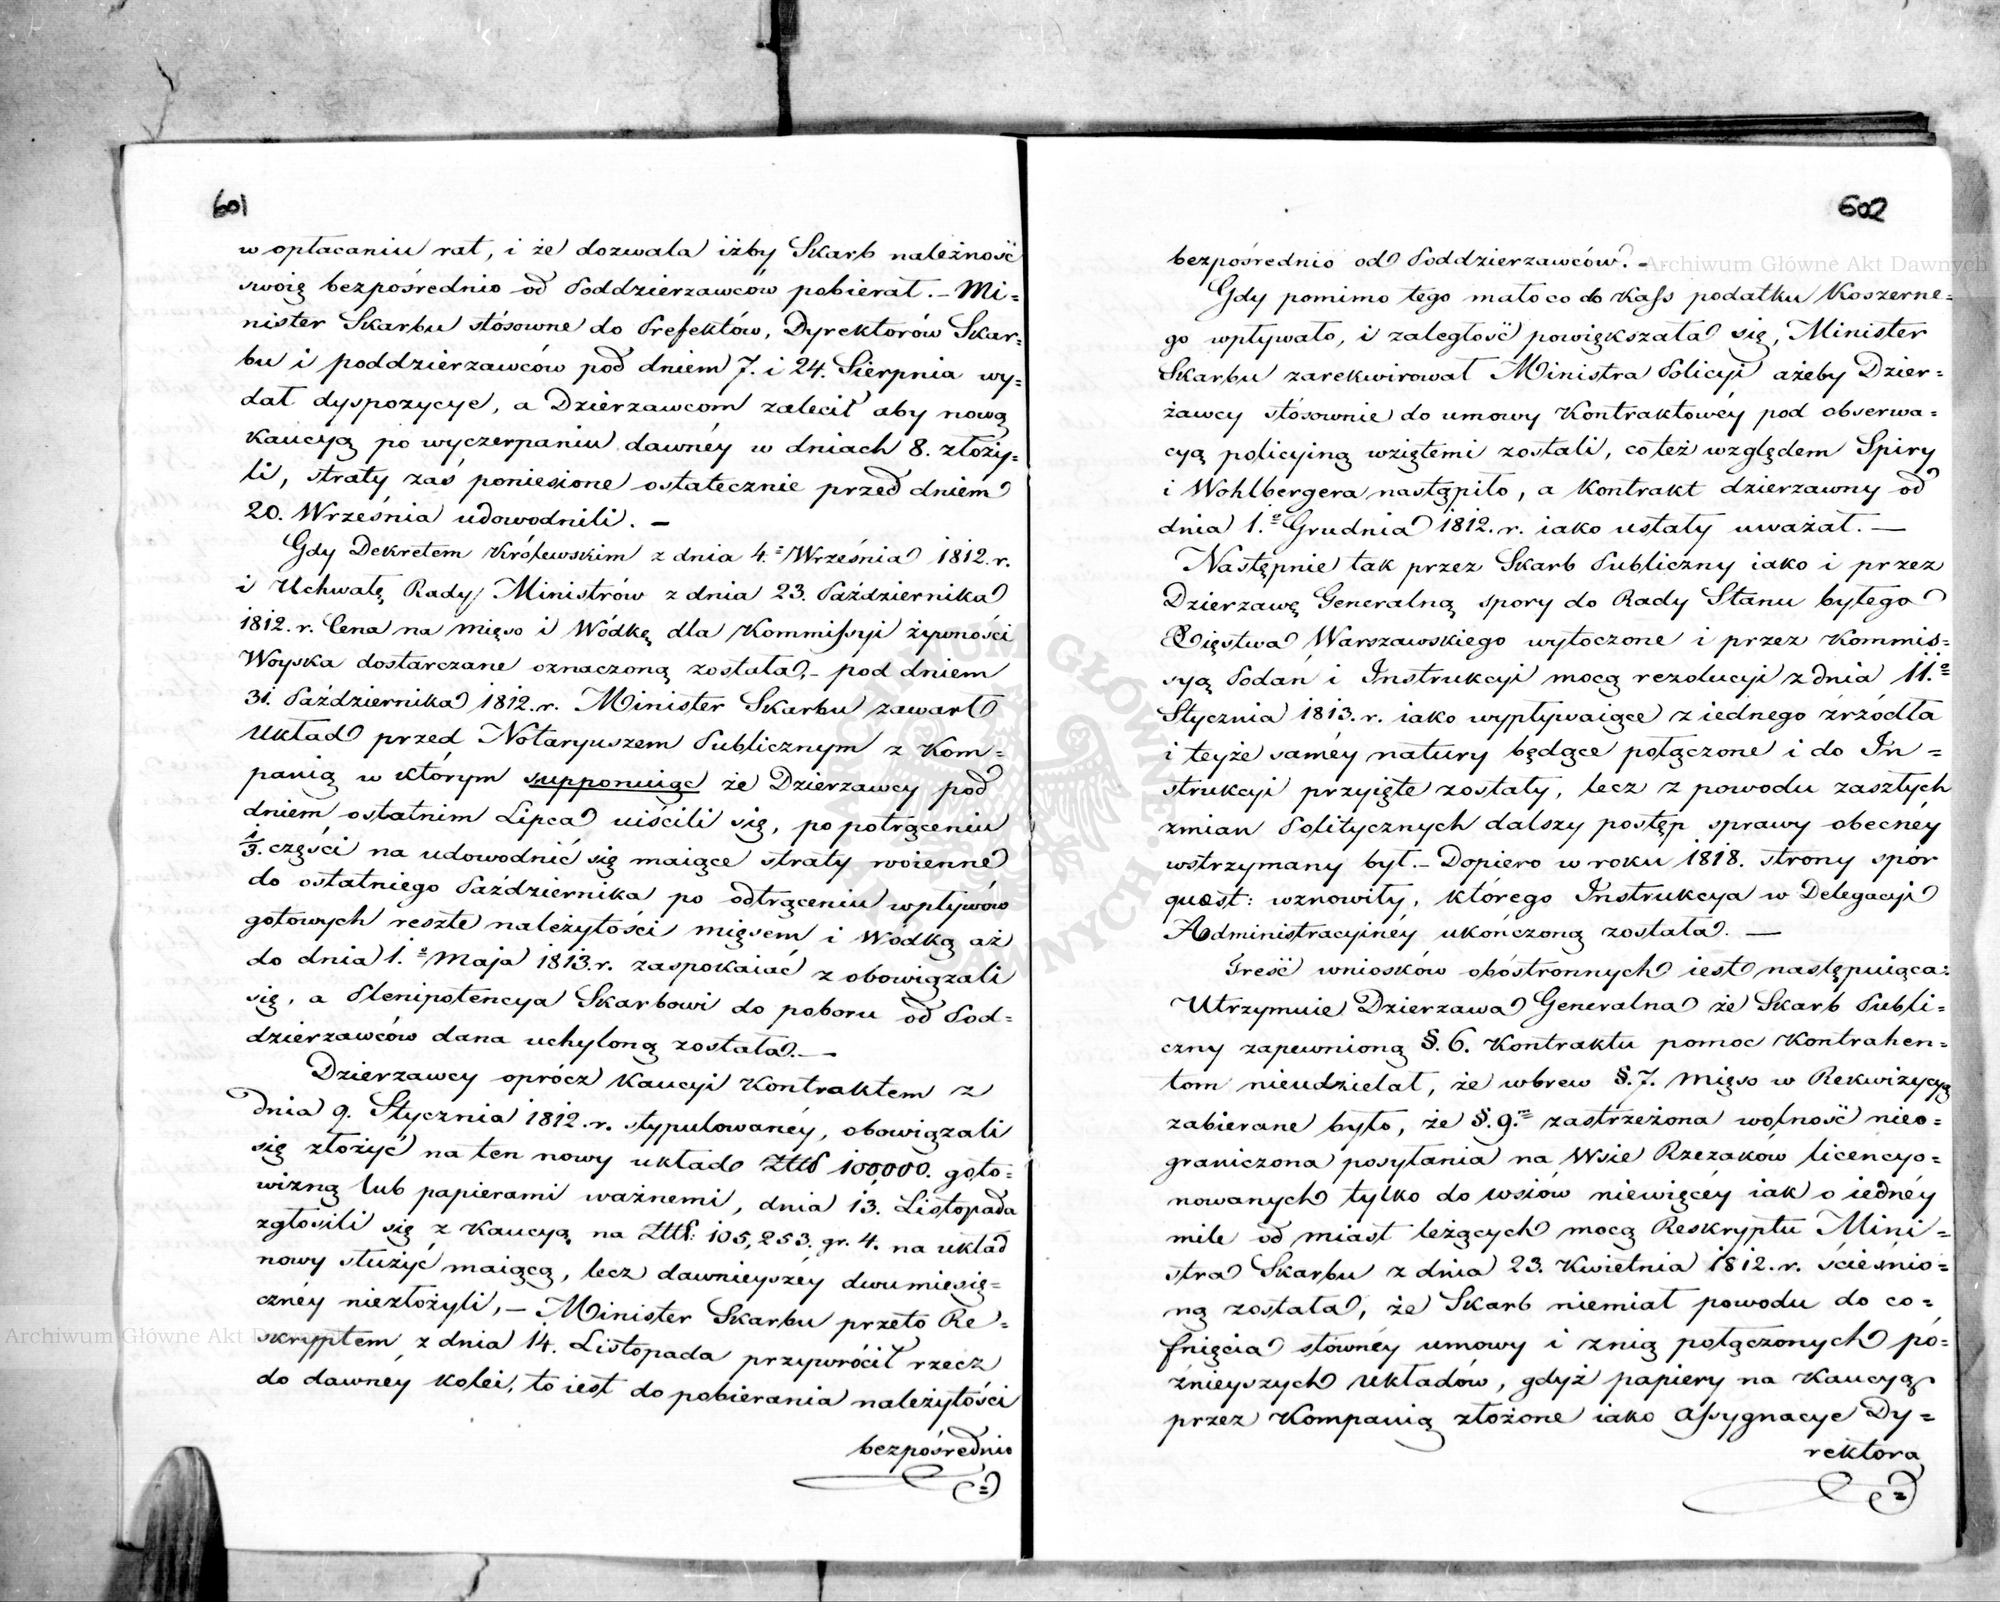 601
w opłacaniu rat, i że dozwala iżby Skarb należność
swoią bezpośrednio od Poddzierzawców pobierał. – Mi=
nister Skarbu stósowne do Prefektów, Dyrektorów Skar=
bu i poddzierzawców pod dniem 7. i 24. Sierpnia wy=
dał dyspozycye, a Dzierzawcom zalecił aby nową
Kaucyą po wyczerpaniu dawnéy w dniach 8. złoży=
li, straty zaś poniesione ostatecznie przed dniem
20. Września udowodnili. –
Gdy Dekretem Królewskim z dnia 4.º Września 1812. r.
i Uchwałą Rady Ministrów z dnia 23. Października
1812. r. Cena na mięso i Wódkę dla Kommissyi żywności
Woyska dostarczane oznaczoną została, – pod dniem
31. Października 1812. r. Minister Skarbu zawarł
Układ przed Notaryuszem Publicznym z Kom=
panią w którym supponuiąc że Dzierzawcy pod
dniem ostatnim Lipca uiścili się, po potrąceniu
1/3. części na udowodnić się maiące straty woienne
do ostatniego Października po odtrąceniu wpływów
gotowych resztę należytości mięsem i Wódką aż
do dnia 1.º Maja 1813. r. zaspokaiać zobowiązali
się, a Plenipotencya Skarbowi do poboru od Pod=
dzierzawców dana uchyloną została. –
Dzierzawcy oprócz Kaucyi Kontraktem z
dnia 9. Stycznia 1812. r. stypulowanéy, obowiązali
się złożyć na ten nowy układ Złtt 100000. goto=
wizną lub papierami ważnemi, dnia 13. Listopada
zgłosili się z Kaucyą na Złtt: 105,253. gr. 4. na układ
nowy służyć maiącą, lecz dawnieyszéy dwumiesię=
cznéy niezłożyli, – Minister Skarbu przeto Re=
skryptem z dnia 14. Listopada przywrócił rzecz
do dawnéy kolei, to iest do pobierania należytości
bezpośrednio
602
bezpośrednio od Poddzierzawców. –
Gdy pomimo tego mało co do Kass podatku Koszerne=
go wpływało, i zaległość powiększała się, Minister
Skarbu zarekwirował Ministra Policyi ażeby Dzier=
żawcy stósownie do umowy Kontraktowéy pod obserwa=
cyą policyiną wziętemi zostali, co też względem Spiry
i Wohlbergera nastąpiło, a Kontrakt dzierzawny od
dnia 1.º Grudnia 1812. r. iako ustały uważał. –
Następnie tak przez Skarb Publiczny iako i przez
Dzierzawę Generalną spory do Rady Stanu byłego
Xięstwa Warszawskiego wytoczone i przez Kommis=
syą Podań i Instrukcyi mocą rezolucyi z dnia 11.º
Stycznia 1813. r. iako wypływaiące z iednego źrzódła
i teyże saméy natury będące połączone i do In=
strukcyi przyięte zostały, lecz z powodu zaszłych
zmian Politycznych dalszy postęp sprawy obecnéy
wstrzymany był. – Dopiero w roku 1818. strony spór
quæst: wznowiły, którego Instrukcya w Delegacyi
Administracyinéy ukończoną została. –
Treść wniosków obóstronnych iest następuiąca:
Utrzymuie Dzierzawa Generalna że Skarb Publi=
czny zapewnioną §. 6. Kontraktu pomoc Kontrahen=
tom nieudzielał, że wbrew §. 7. mięso w Rekwizycyą
zabierane było, że §. 9.m zastrzeżona wolność nieo=
graniczona posyłania na Wsie Rzezaków licencyo=
nowanych tylko do wsiów niewięcéy iak o iednéy
mile od miast leżących mocą Reskryptu Mini=
stra Skarbu z dnia 23. Kwietnia 1812. r. ścieśnio=
ną została, że Skarb niemiał powodu do co=
fnięcia słownéy umowy i znią połączonych pó=
źnieyszych Układów, gdyż papiery na Kaucyą
przez Kompanią złożone iako Assygnacye Dy=
rektora
Archiwum Główne Akt Dawnych
Archiwum Główne Akt Dawnych